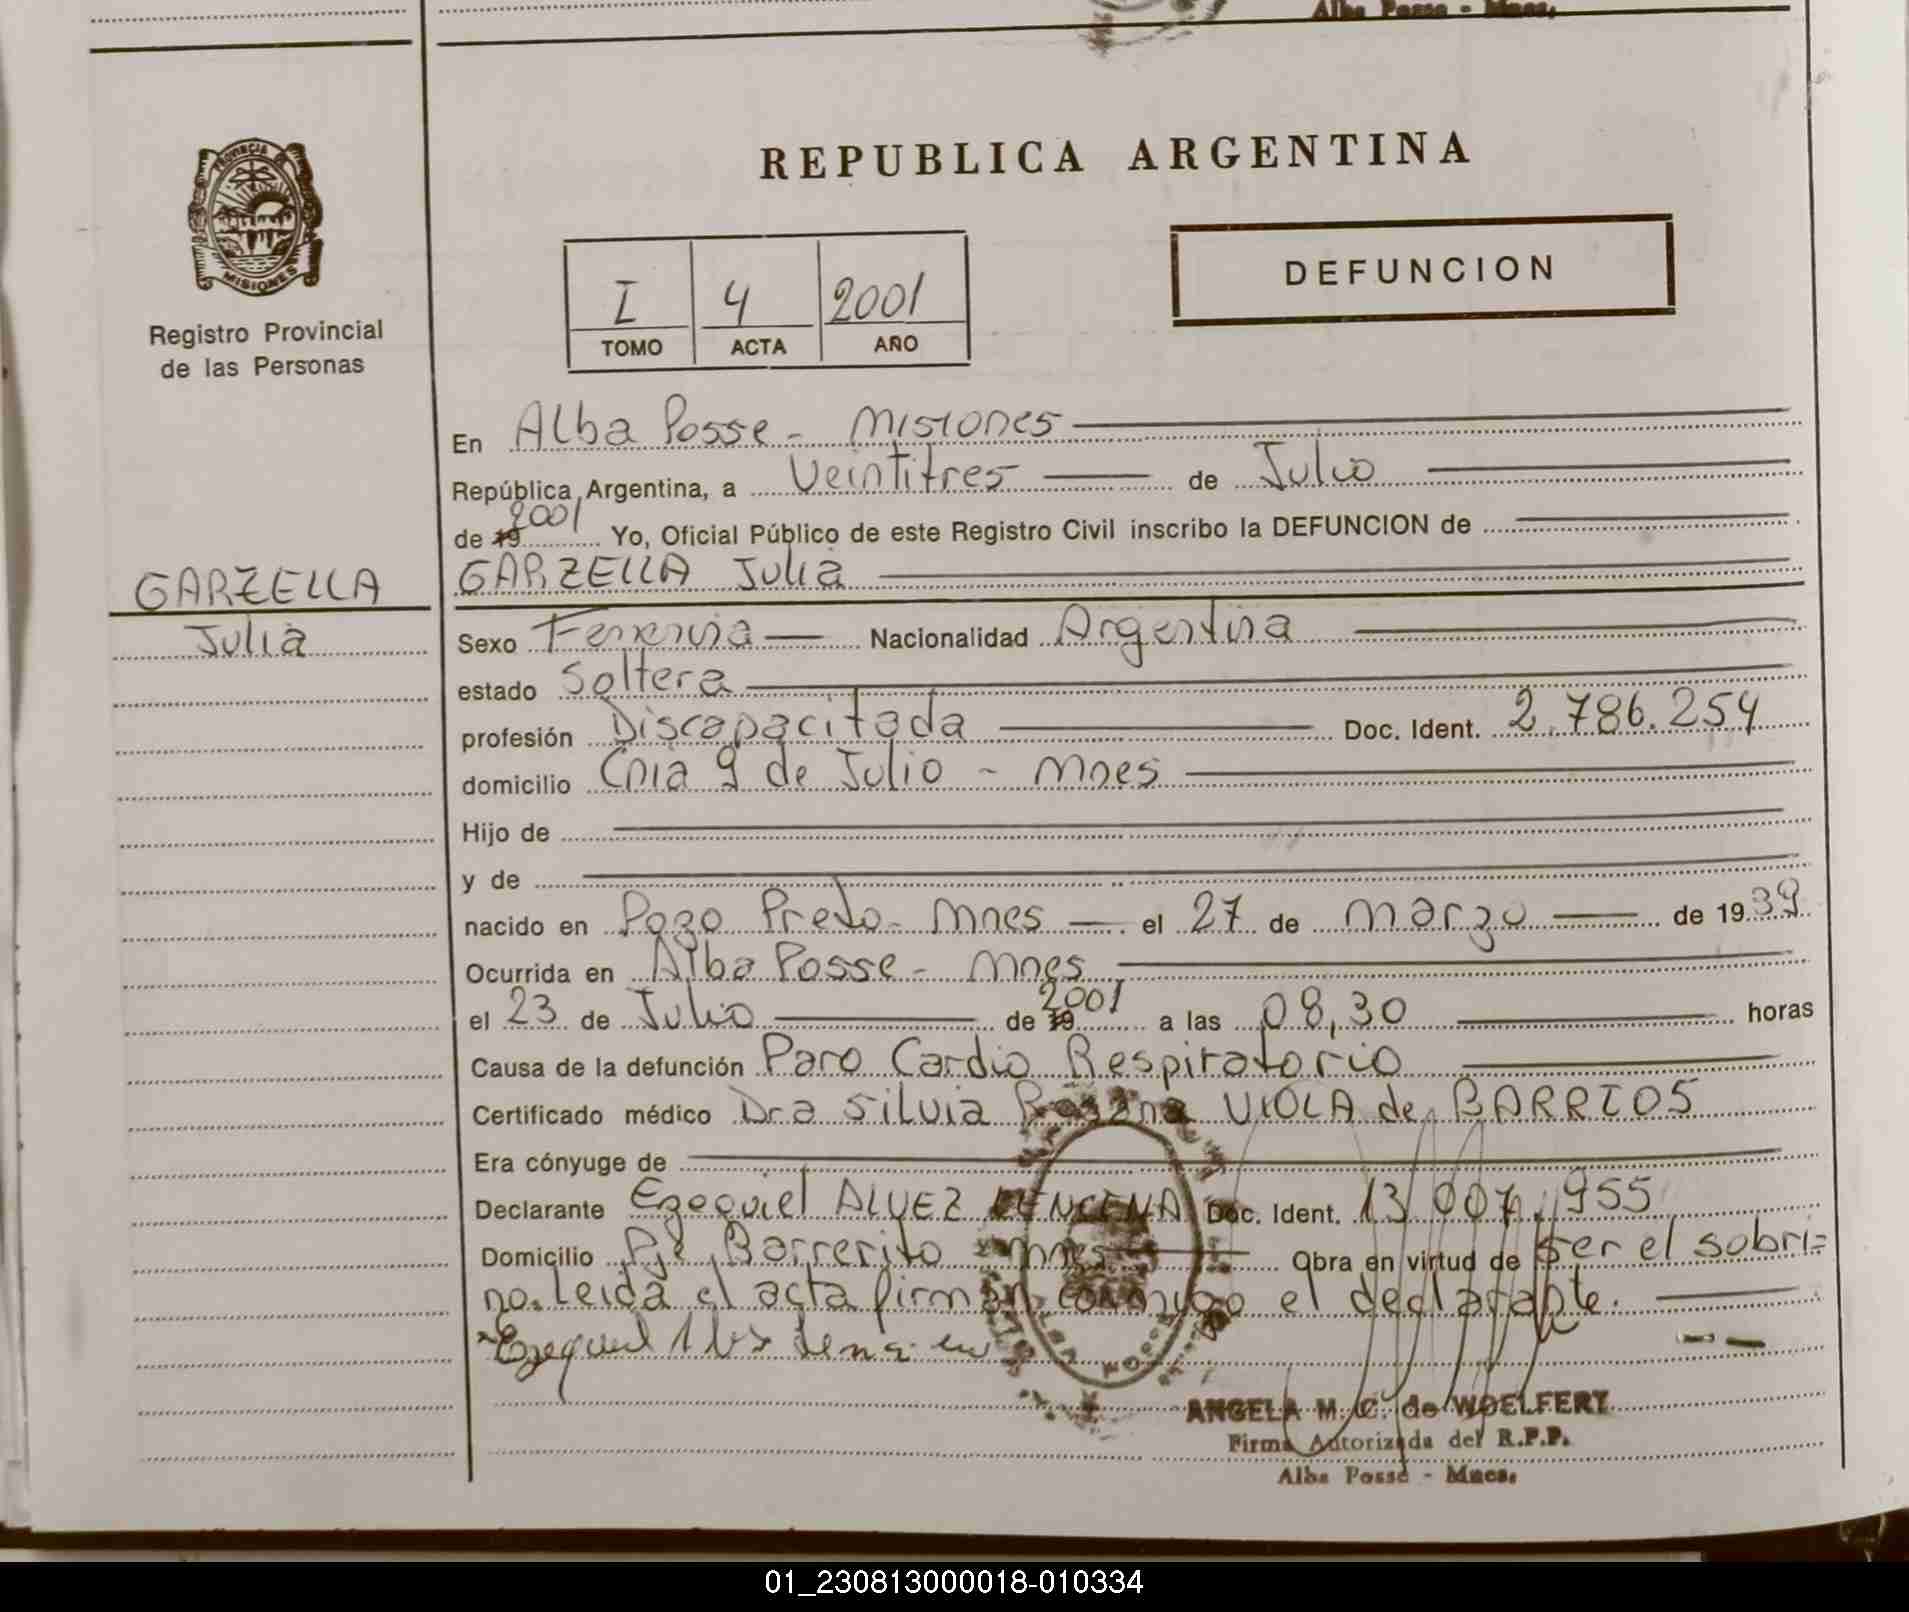 Alba Posse - Mnes.
PROVINCIA DE
MISIONES
Registro Provincial
de las Personas
REPUBLICA ARGENTINA
DEFUNCION
I 4 2001
TOMO ACTA AÑO
En Alba Posse - Misiones
República Argentina, a Veintitres de Julio
de 19 2001 Yo, Oficial Público de este Registro Civil inscribo la DEFUNCION de
GARZELLA Julia
GARZELLA
Julia
Sexo Femenina Nacionalidad Argentina
estado Soltera
profesión Discapacitada Doc. Ident. 2.786.254
domicilio Cnia 9 de Julio - Mnes
Hijo de
y de
nacido en Pozo Preto - Mnes el 27 de Marzo de 1939
Ocurrida en Alba Posse - Mnes
el 23 de Julio de 19 2001 a las 08,30 horas
Causa de la defunción Paro Cardio Respiratorio
Certificado médico Dra Silvia Rosana VIOLA de BARRIOS
Era cónyuge de
Declarante Ezequiel ALVEZ Doc. Ident. 13.007.955
Domicilio Pje Barrerito - Mnes Obra en virtud de ser el sobri=
no. Leida el acta firman conmigo el declarante.
Ezequiel
ANGELA M. C. de WOELFERT
Firma Autorizada del R.P.P.
Alba Posse - Mnes.
01_230813000018-010334